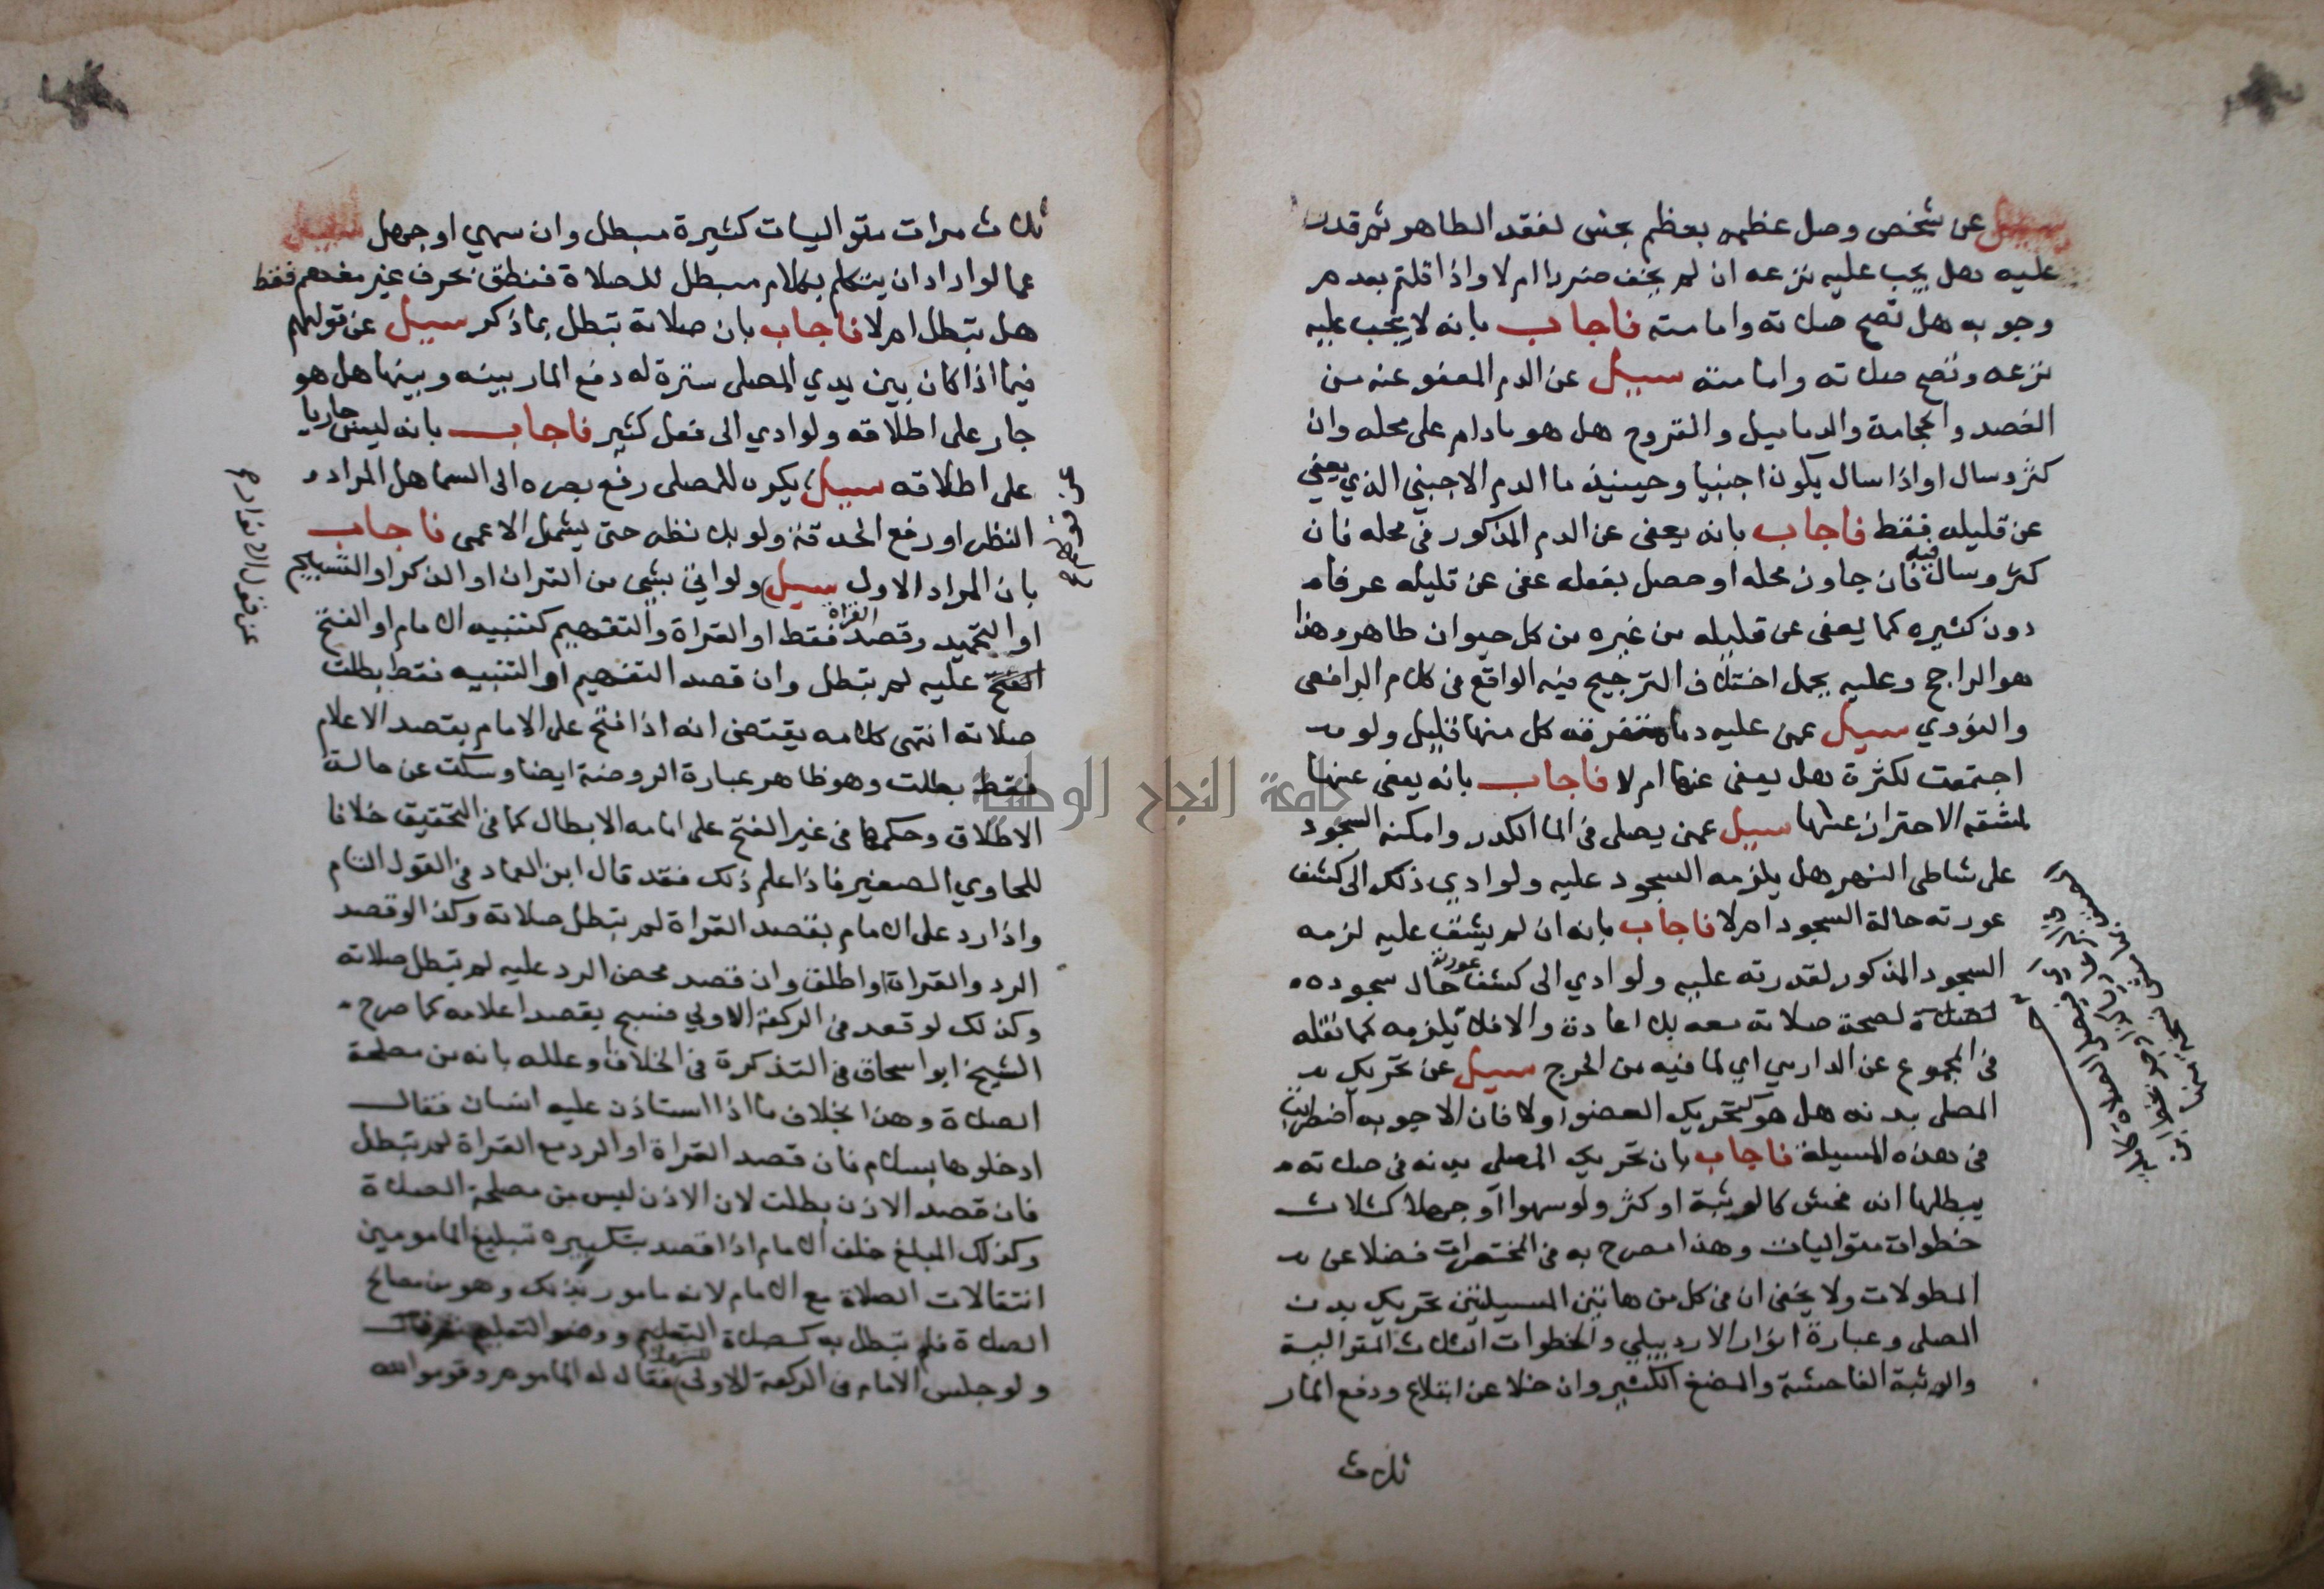 سيل عن شخص وصل عظمه بعظم نجس لفقد الطاهر ثم قدر
عليه هل يجب عليه نزعه ان لم يخف ضررا ام لا واذا قلتم بعدم
وجوبه هل تصح صلاته وامامته فاجاب بانه لا يجب عليه
نزعه وتصح صلاته وامامته سيل عن الدم المعفو عنه من
الفصد والحجامة والدماميل والقروح هل هو مادام على محله وان
كثر وسال او اذا سال يكون اجنبيا وحينيذ ما الدم الاجنبي الذي يعفي
عن قليله فقط فاجاب بانه يعفى عن الدم المذكور في محله فان
كثر وسال فيه فان جاوز محله او حصل بفعله عفى عن قليله عرفا
دون كثيره كما يعفى عن قليله من غيره من كل حيوان طاهر وهذا
هو الراجح وعليه يحمل اختلاف الترجيح فيه الواقع في كلام الرافعى
والنووي سيل عمن عليه دما متفرقه كل منها قليل ولو
اجتمعت لكثرة هل يعفى عنها ام لا فاجاب بانه يعفى عنها
لمشقه الاحتراز عنها سيل عمن يصلى في الما الكدر وامكنه السجود
على شاطى النهر هل يلزمه السجود عليه ولو ادي ذلك الى كشف
عورته حالة السجود ام لا فاجاب بانه ان لم يشق عليه لزمه
السجود المذكور لقدرته عليه ولو ادي الى كشف عورته حال سجوده
لصحة صلاته معه بلا اعادة والا فلا يلزمه كما نقله
في المجموع عن الدارمي اي لما فيه من الحرج سيل عن تحريك
المصلى بدنه هل هو كتحريك العضو اولا فان الاجوبه اضطربت
في هذه المسيلة فاجاب بان تحريك المصلي بدنه في صلاته
يبطلها انه فحش كالوثبة او كثر ولو سهوا او جهلا كثلاث
خطوات متواليات وهذا مصرح به في المختصرات فضلا عن
المطولات ولا يخفى ان في كل من هاتين المسيلتين تحريك بدن
المصلى وعبارة انوار الاردبيلي والخطوات الثلاث المتوالية
والوثبة الفاحشة والمضغ الكثير وان خلا عن ابتلاع ودفع المار
ثلاث
ثلاث مرات متواليات كثيرة مبطل وان سهي او جهل سيل
عما لو اراد ان يتكلم بكلام مبطل للصلاة فنطق بحرف غير مفهم فقط
هل تبطل ام لا فاجاب بان صلاته تبطل بما ذكر سيل عن قولهم
فيما اذا كان بين يدي المصلى سترة له دفع المار بينه وبينها هل هو
جار على اطلاقه ولو ادي الى فعل كثير فاجاب بانه ليس جاريا
على اطلاقه سيل يكره للمصلى رفع بصره الى السما هل المراد
النظر او رفع الحدقة ولو بلا نظر حتى يشمل الاعمى فاجاب
بان المراد الاول سيل ولو اتى بشي من القران او الذكر او التسبيح
او التحميد وقصد القراة فقط او القراة والتفهيم كتنبيه الامام او الفتح
عليه لم تبطل وان قصد التفهيم او التنبيه فقط بطلت
صلاته انتهى كلامه يقتضى انه اذا فتح على الامام بقصد الاعلام
فقط بطلت وهو ظاهر عبارة الروضة ايضا وسكت عن حالة
الاطلاق وحكمها في غير الفتح على امامه الابطال كما في التحقيق خلافا
للحاوي الصغير فاذا علم ذلك فقد قال ابن العماد في القول التام
واذا رد على الامام بقصد القراة لم تبطل صلاته وكذا لو قصد
الرد والقراة او اطلق وان قصد محض الرد عليه لم تبطل صلاته
وكذلك لو قعد في الركعة الاولي فسبح يقصد اعلامه كما صرح
الشيخ ابو اسحاق في التذكرة في الخلاف وعلله بانه من مصلحة
الصلاة وهذا بخلاف ما اذا استاذن عليه انسان فقال
ادخلوها بسلام فان قصد القراة او الرد مع القراة لم تبطل
فان قصد الاذن بطلت لان الاذن ليس من مصلحة الصلاة
وكذلك المبلغ خلف الامام اذا قصد بتكبيره تبليغ المامومين
انتقالات الصلاة مع الامام لانه مامور بذلك وهو من مصالح
الصلاة فلم تبطل به كصلاة
ولو جلس الامام في الركعة الاولى فقال له الماموم وقوموا لله
جامعة النجاح الوطنية